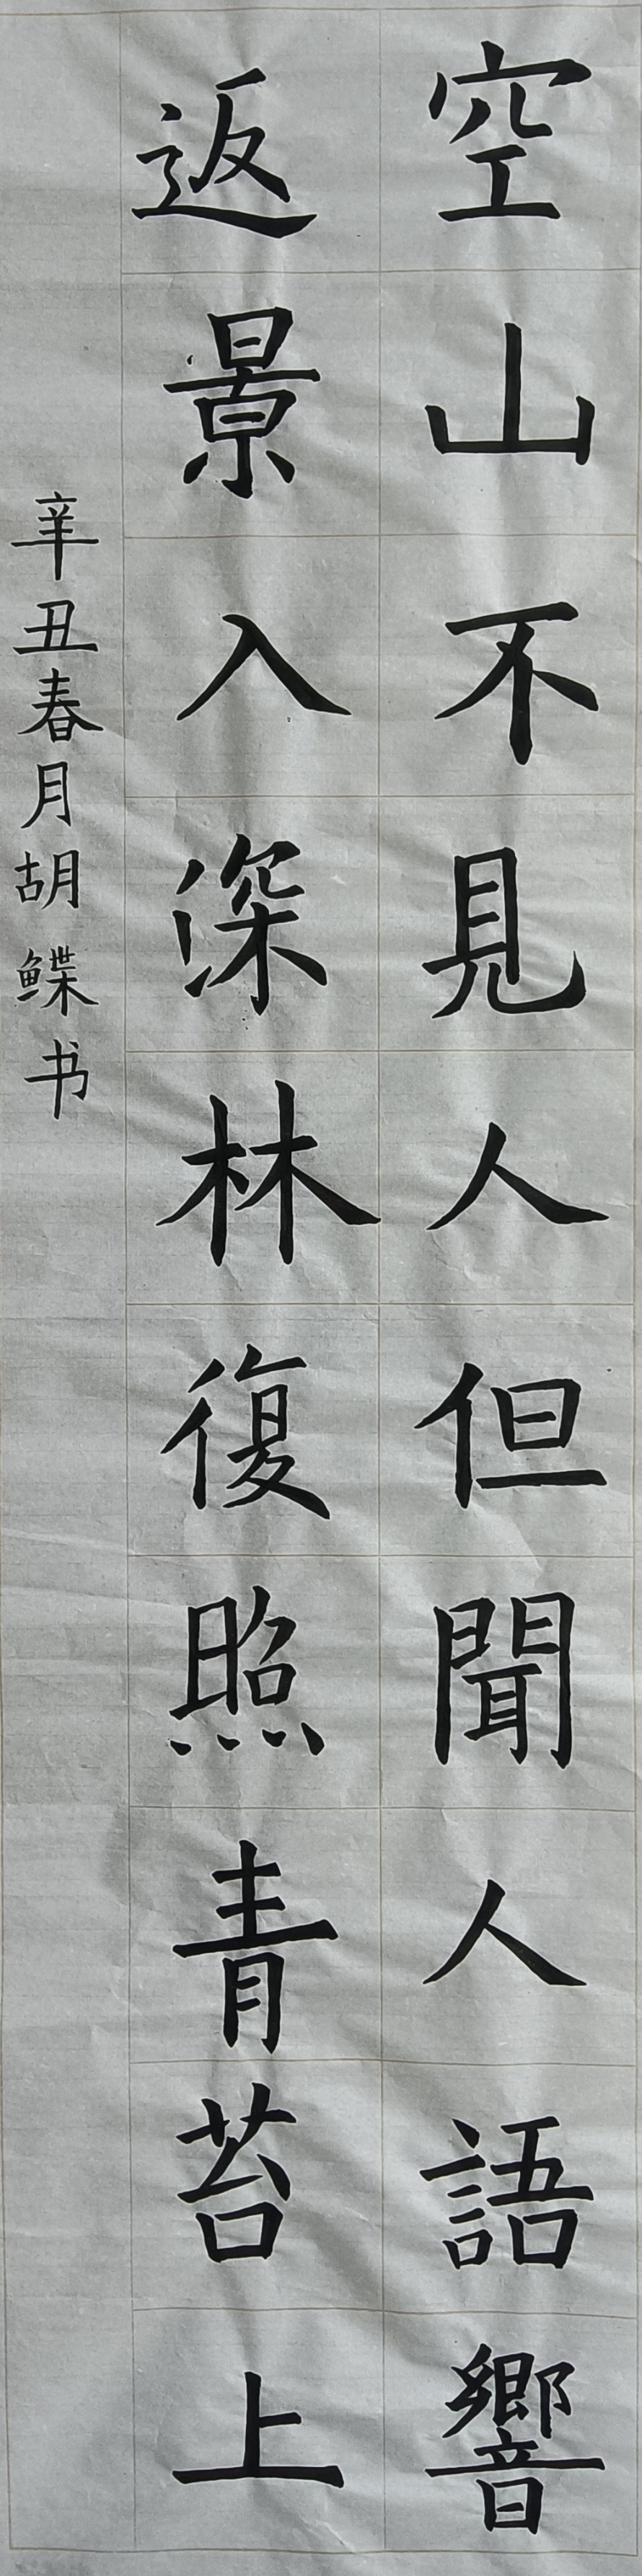 空山不見人但聞人語響
返景入深林復照青苔上
辛丑春月胡鲽书